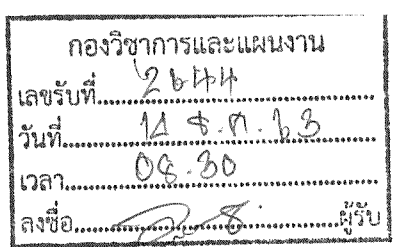 กองวิชาการและแผนงาน
เลขรับที่ 2644
วันที่ 14 ธ.ค. 63
เวลา 08.30
ลงชื่อ ผู้รับ